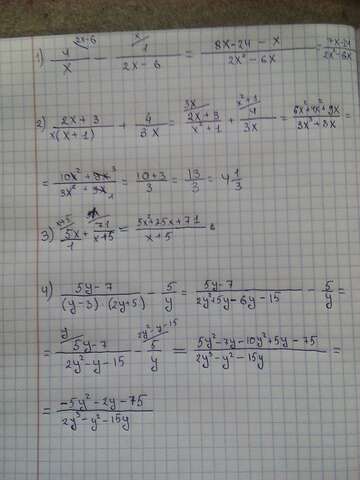 1) 4/x^(2x-6) - 1/(2x-6)^(x) = (8x-24-x)/(2x²-6x) = (7x-24)/(2x²-6x)
2) (2x+3)/(x(x+1)) + 4/(3x) = (2x+3)/(x²+1)^(3x) + 4/(3x)^(x²+1) = (6x²+4x²+9x)/(3x³+3x) =
= (10x²+9x³)/(3x²+3x₁) = (10+3)/3 = 13/3 = 4 1/3
3) 5x/1^(x+5) + 71/(x+5) = (5x²+25x+71)/(x+5)
4) (5y-7)/((y-3)·(2y+5)) - 5/y = (5y-7)/(2y²+5y-6y-15) - 5/y =
= (5y-7)/(2y²-y-15)^(y) - 5/y^(2y²-y-15) = (5y²-7y-10y²+5y-75)/(2y³-y²-15y) =
= (-5y²-2y-75)/(2y³-y²-15y)